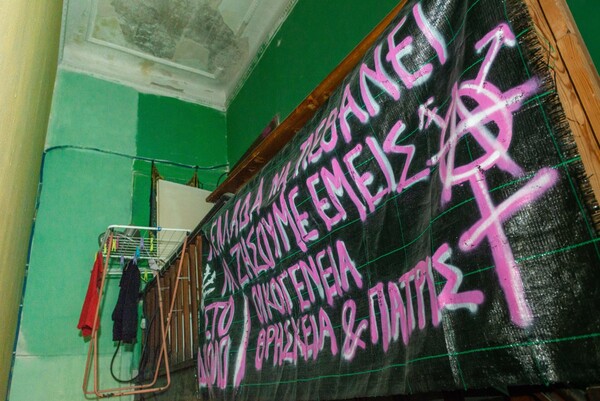 ΕΛΛΑΔΑ ΝΑ ΠΕΘΑΝΕΙ
ΝΑ ΖΗΣΟΥΜΕ ΕΜΕΙΣ
ΣΤΟ
ΟΙΚΟΓΕΝΕΙΑ
ΘΡΗΣΚΕΙΑ & ΠΑΤΡΙΣ